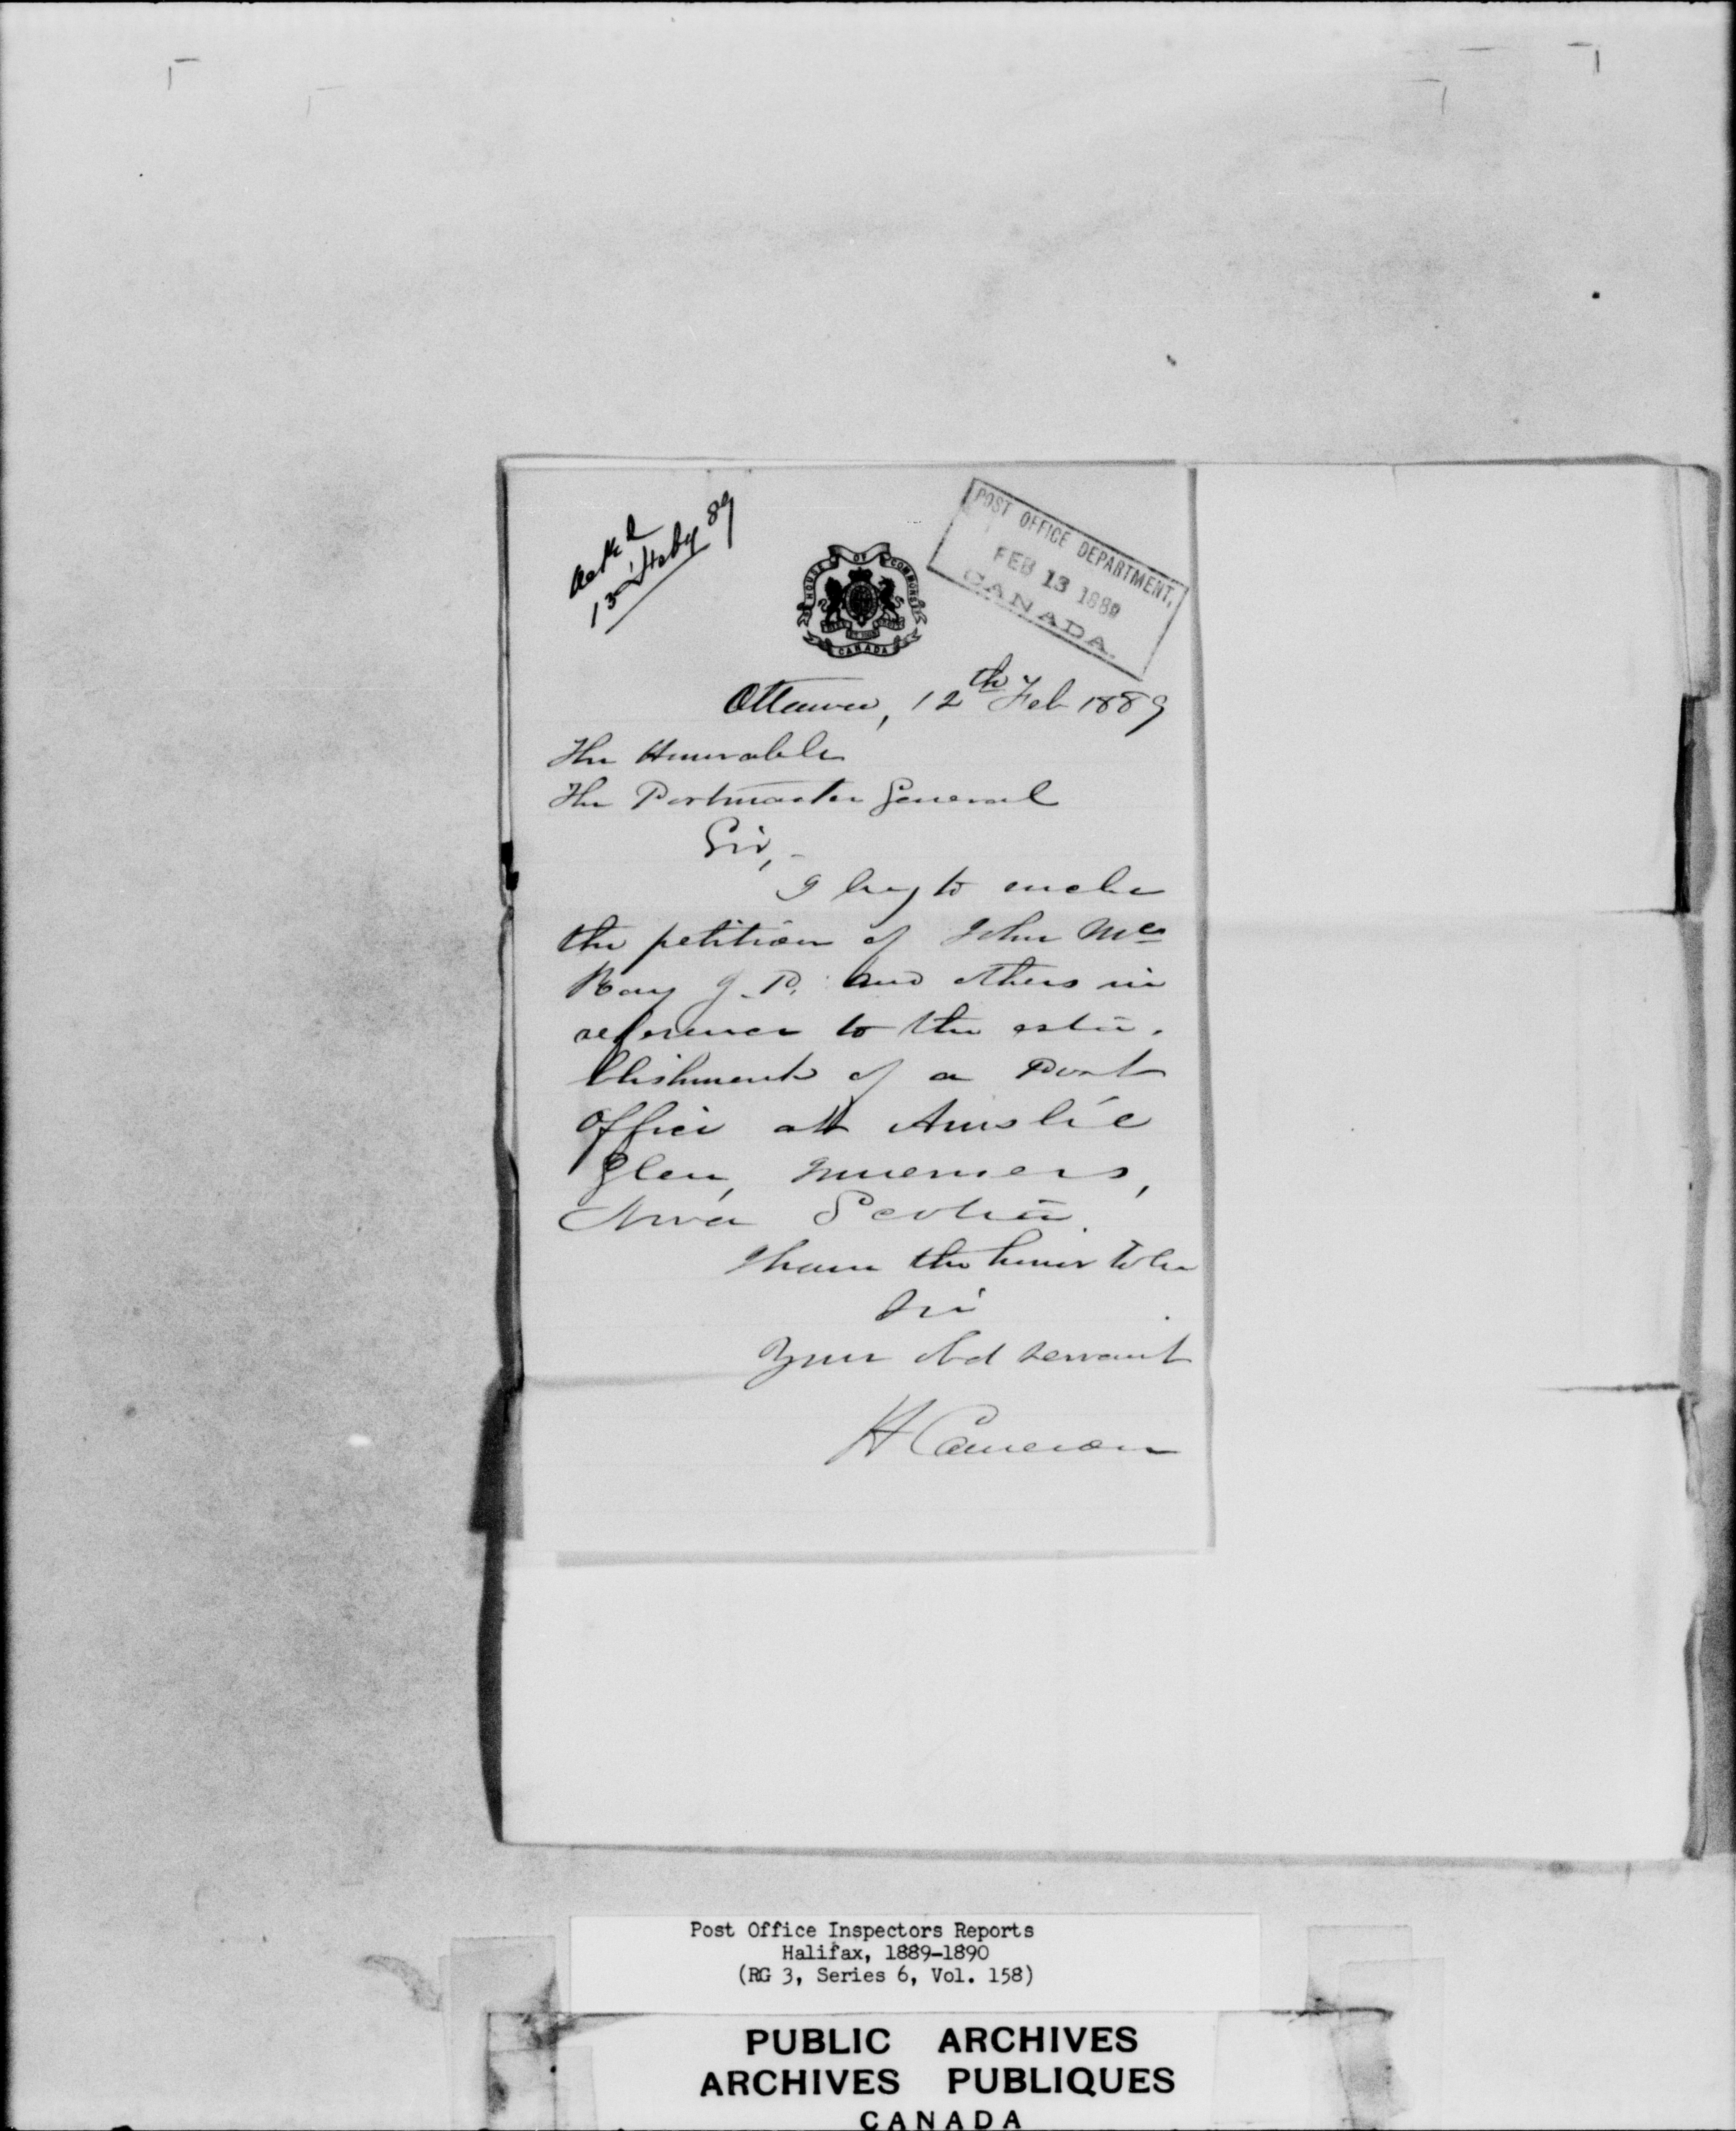 Ack'd
13 Feby 89
POST OFFICE DEPARTMENT,
FEB 13 1889
CANADA.
HOUSE OF COMMONS
CANADA
Ottawa, 12th Feb 1889
The Honorable
The Postmaster General
Sir,-
I beg to enclose
the petition of John Mc
Kay J.P. and others in
reference to the esta-
blishment of a Post
Office at Ainslie
Glen, Inverness,
Nova Scotia.
I have the honor to be
Sir
Your Obd servant
H Cameron
Post Office Inspectors Reports
Halifax, 1889-1890
(RG 3, Series 6, Vol. 158)
PUBLIC ARCHIVES
ARCHIVES PUBLIQUES
CANADA